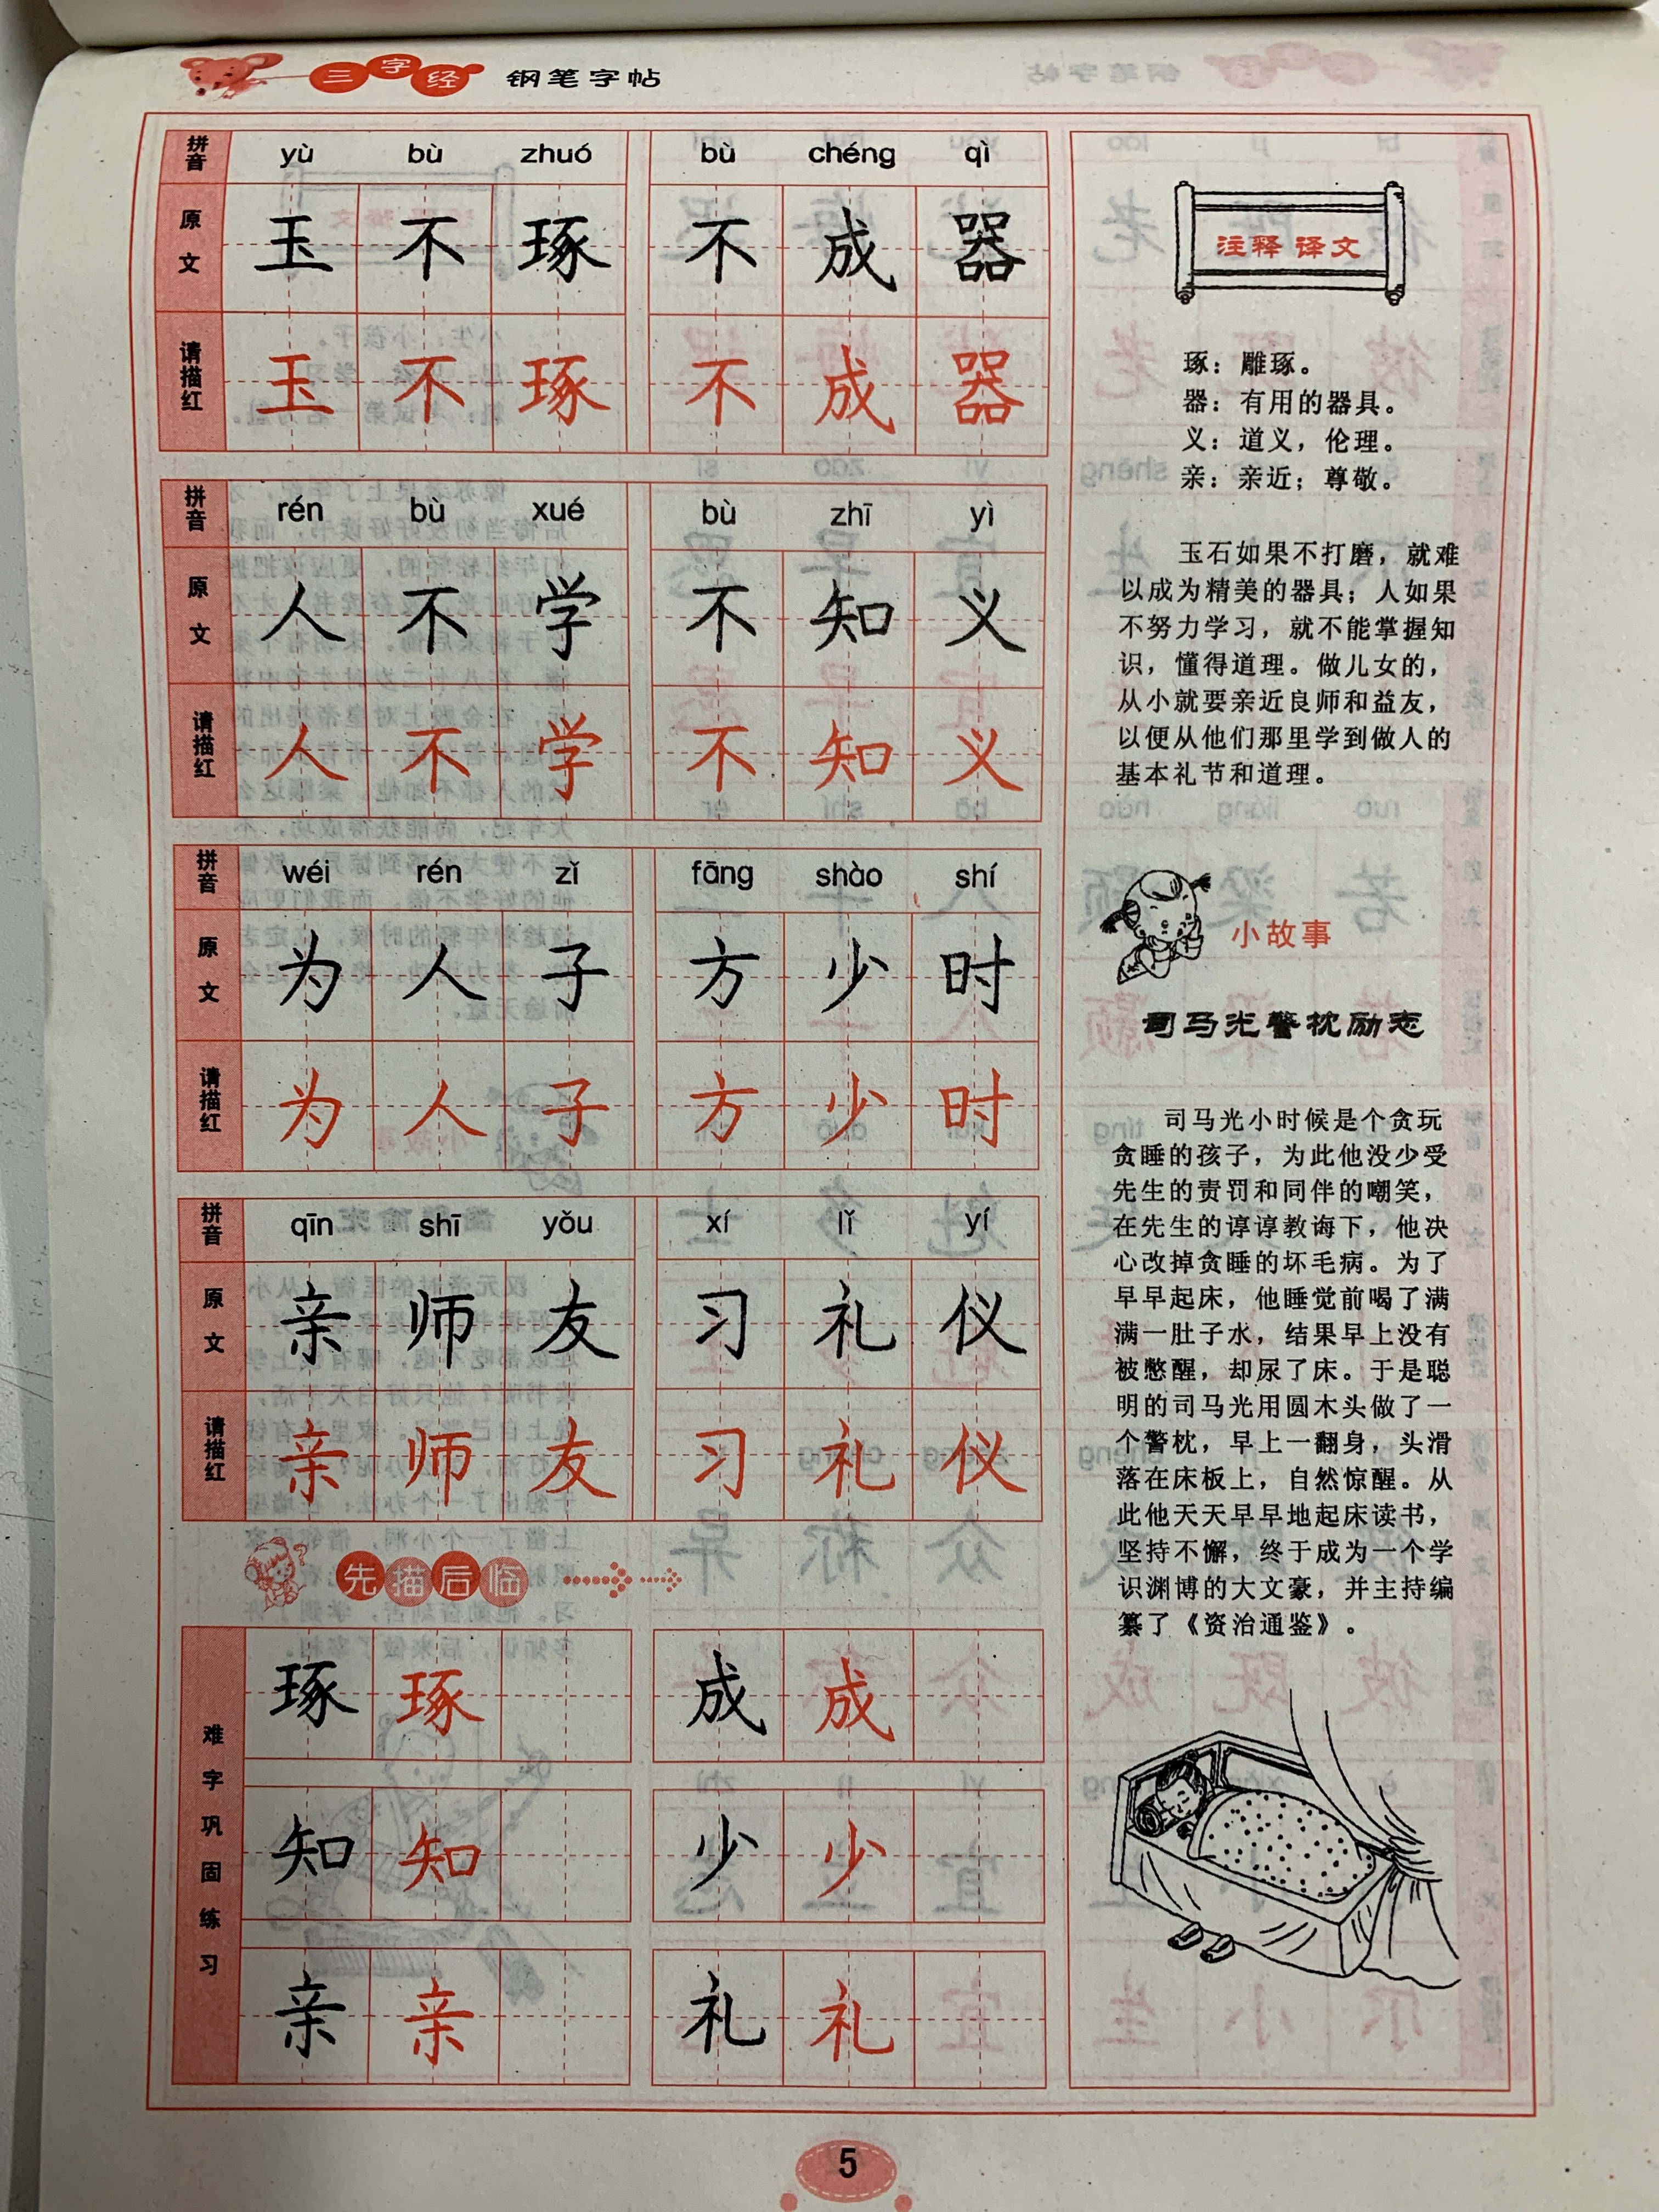 三字经 钢笔字帖
拼音 yù bù zhuó bù chéng qì
原文 玉不琢 不成器
请描红 玉不琢 不成器
拼音 rén bù xué bù zhī yì
原文 人不学 不知义
请描红 人不学 不知义
拼音 wéi rén zǐ fāng shào shí
原文 为人子 方少时
请描红 为人子 方少时
拼音 qīn shī yǒu xí lǐ yí
原文 亲师友 习礼仪
请描红 亲师友 习礼仪
先描后临
难字巩固练习
琢 琢 成 成
知 知 少 少
亲 亲 礼 礼
注释 译文
琢：雕琢。
器：有用的器具。
义：道义，伦理。
亲：亲近；尊敬。
玉石如果不打磨，就难
以成为精美的器具；人如果
不努力学习，就不能掌握知
识，懂得道理。做儿女的，
从小就要亲近良师和益友，
以便从他们那里学到做人的
基本礼节和道理。
小故事
司马光警枕励志
司马光小时候是个贪玩
贪睡的孩子，为此他没少受
先生的责罚和同伴的嘲笑，
在先生的谆谆教诲下，他决
心改掉贪睡的坏毛病。为了
早早起床，他睡觉前喝了满
满一肚子水，结果早上没有
被憋醒，却尿了床。于是聪
明的司马光用圆木头做了一
个警枕，早上一翻身，头滑
落在床板上，自然惊醒。从
此他天天早早地起床读书，
坚持不懈，终于成为一个学
识渊博的大文豪，并主持编
纂了《资治通鉴》。
5